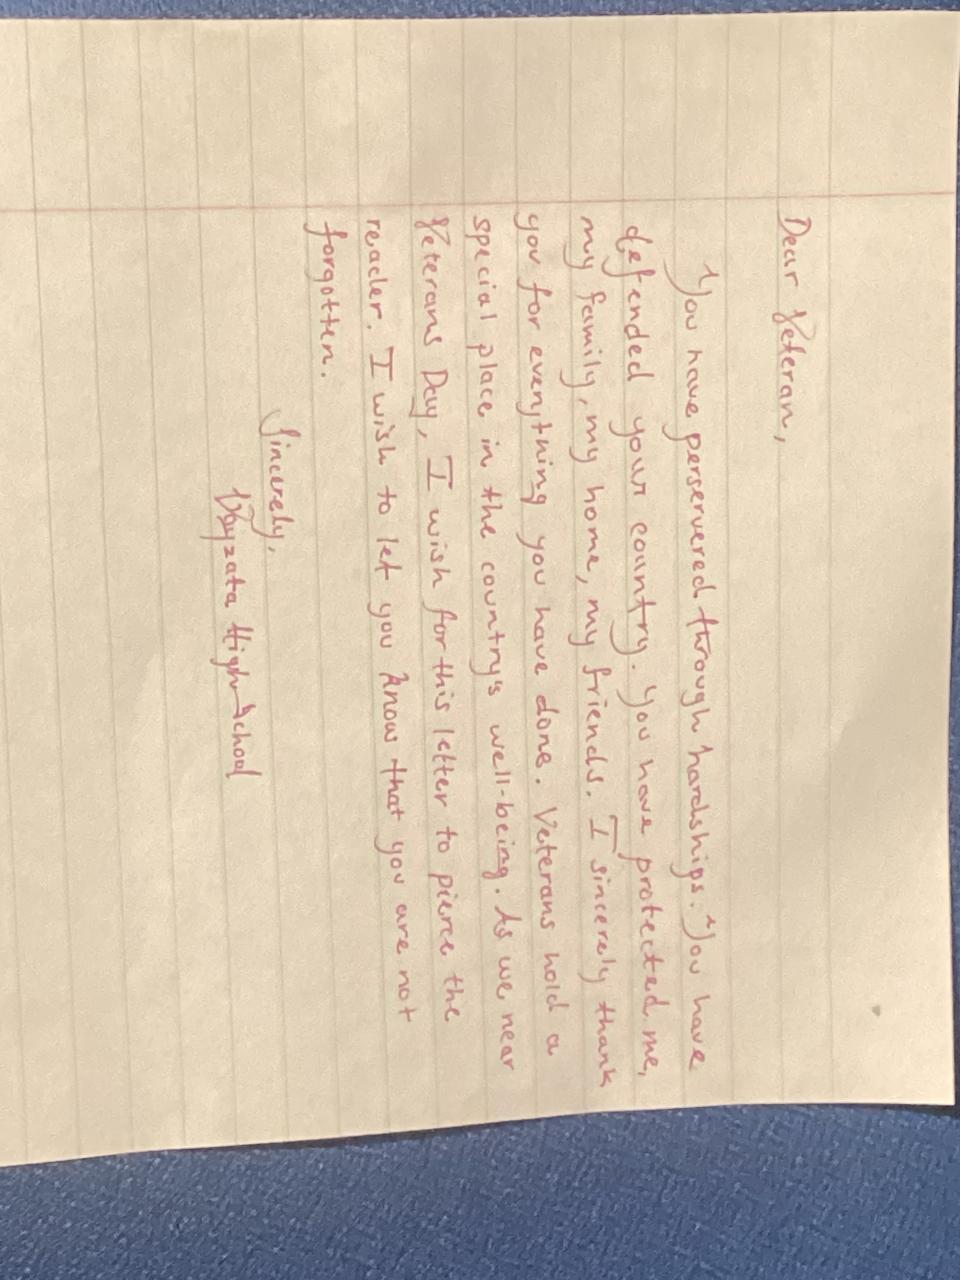 Dear Veteran,
You have perservered through hardships. You have
defended your country. You have protected me,
my family, my home, my friends. I sincerely thank
you for everything you have done. Veterans hold a
special place in the country's well-being. As we near
Veterans Day, I wish for this letter to pierce the
reader. I wish to let you know that you are not
forgotten.
Sincerely,
Wayzata High School